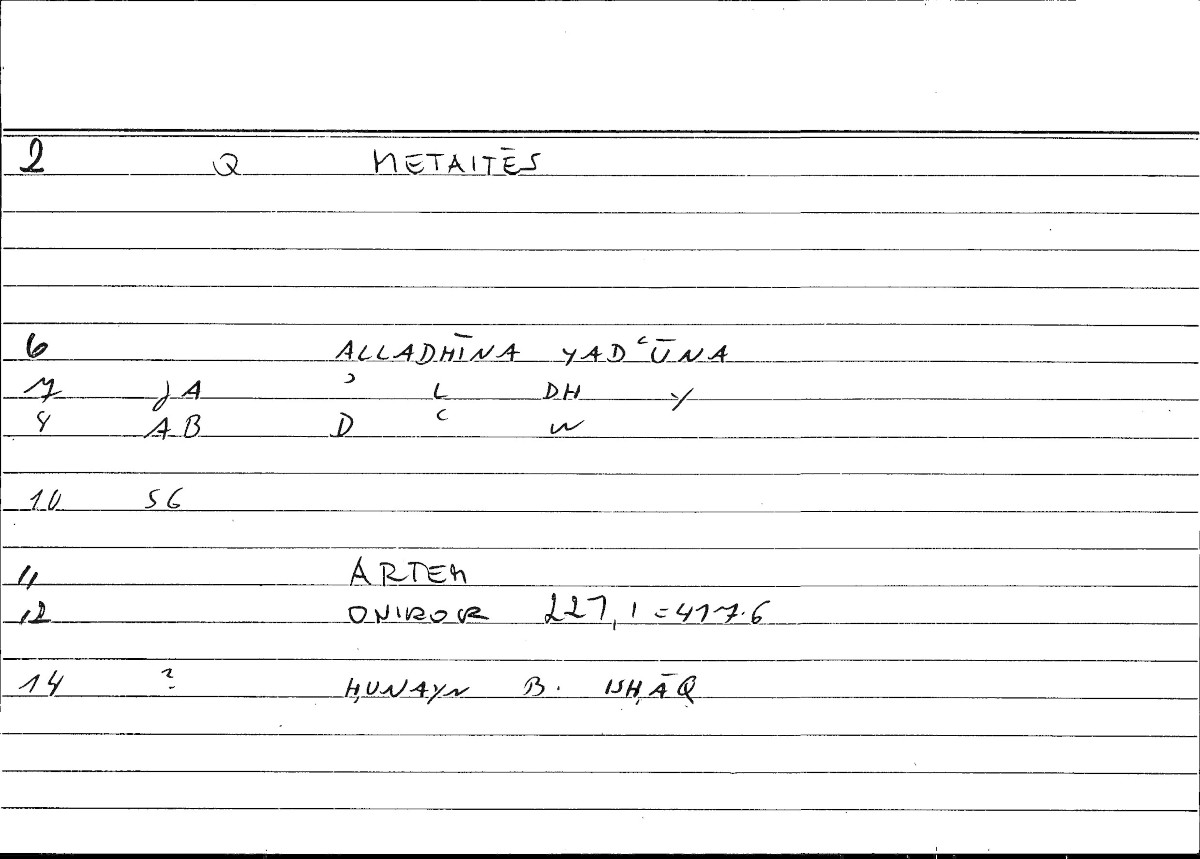 2 Q METAITĒS
6 ALLADHĪNA YADʿŪNA
7 JA ʾ L DH Y
8 AB D ʿ W
10 SG
11 ARTEM
12 ONIROCR 227,1=417.6
14 ? ḤUNAYN B. ISḤĀQ